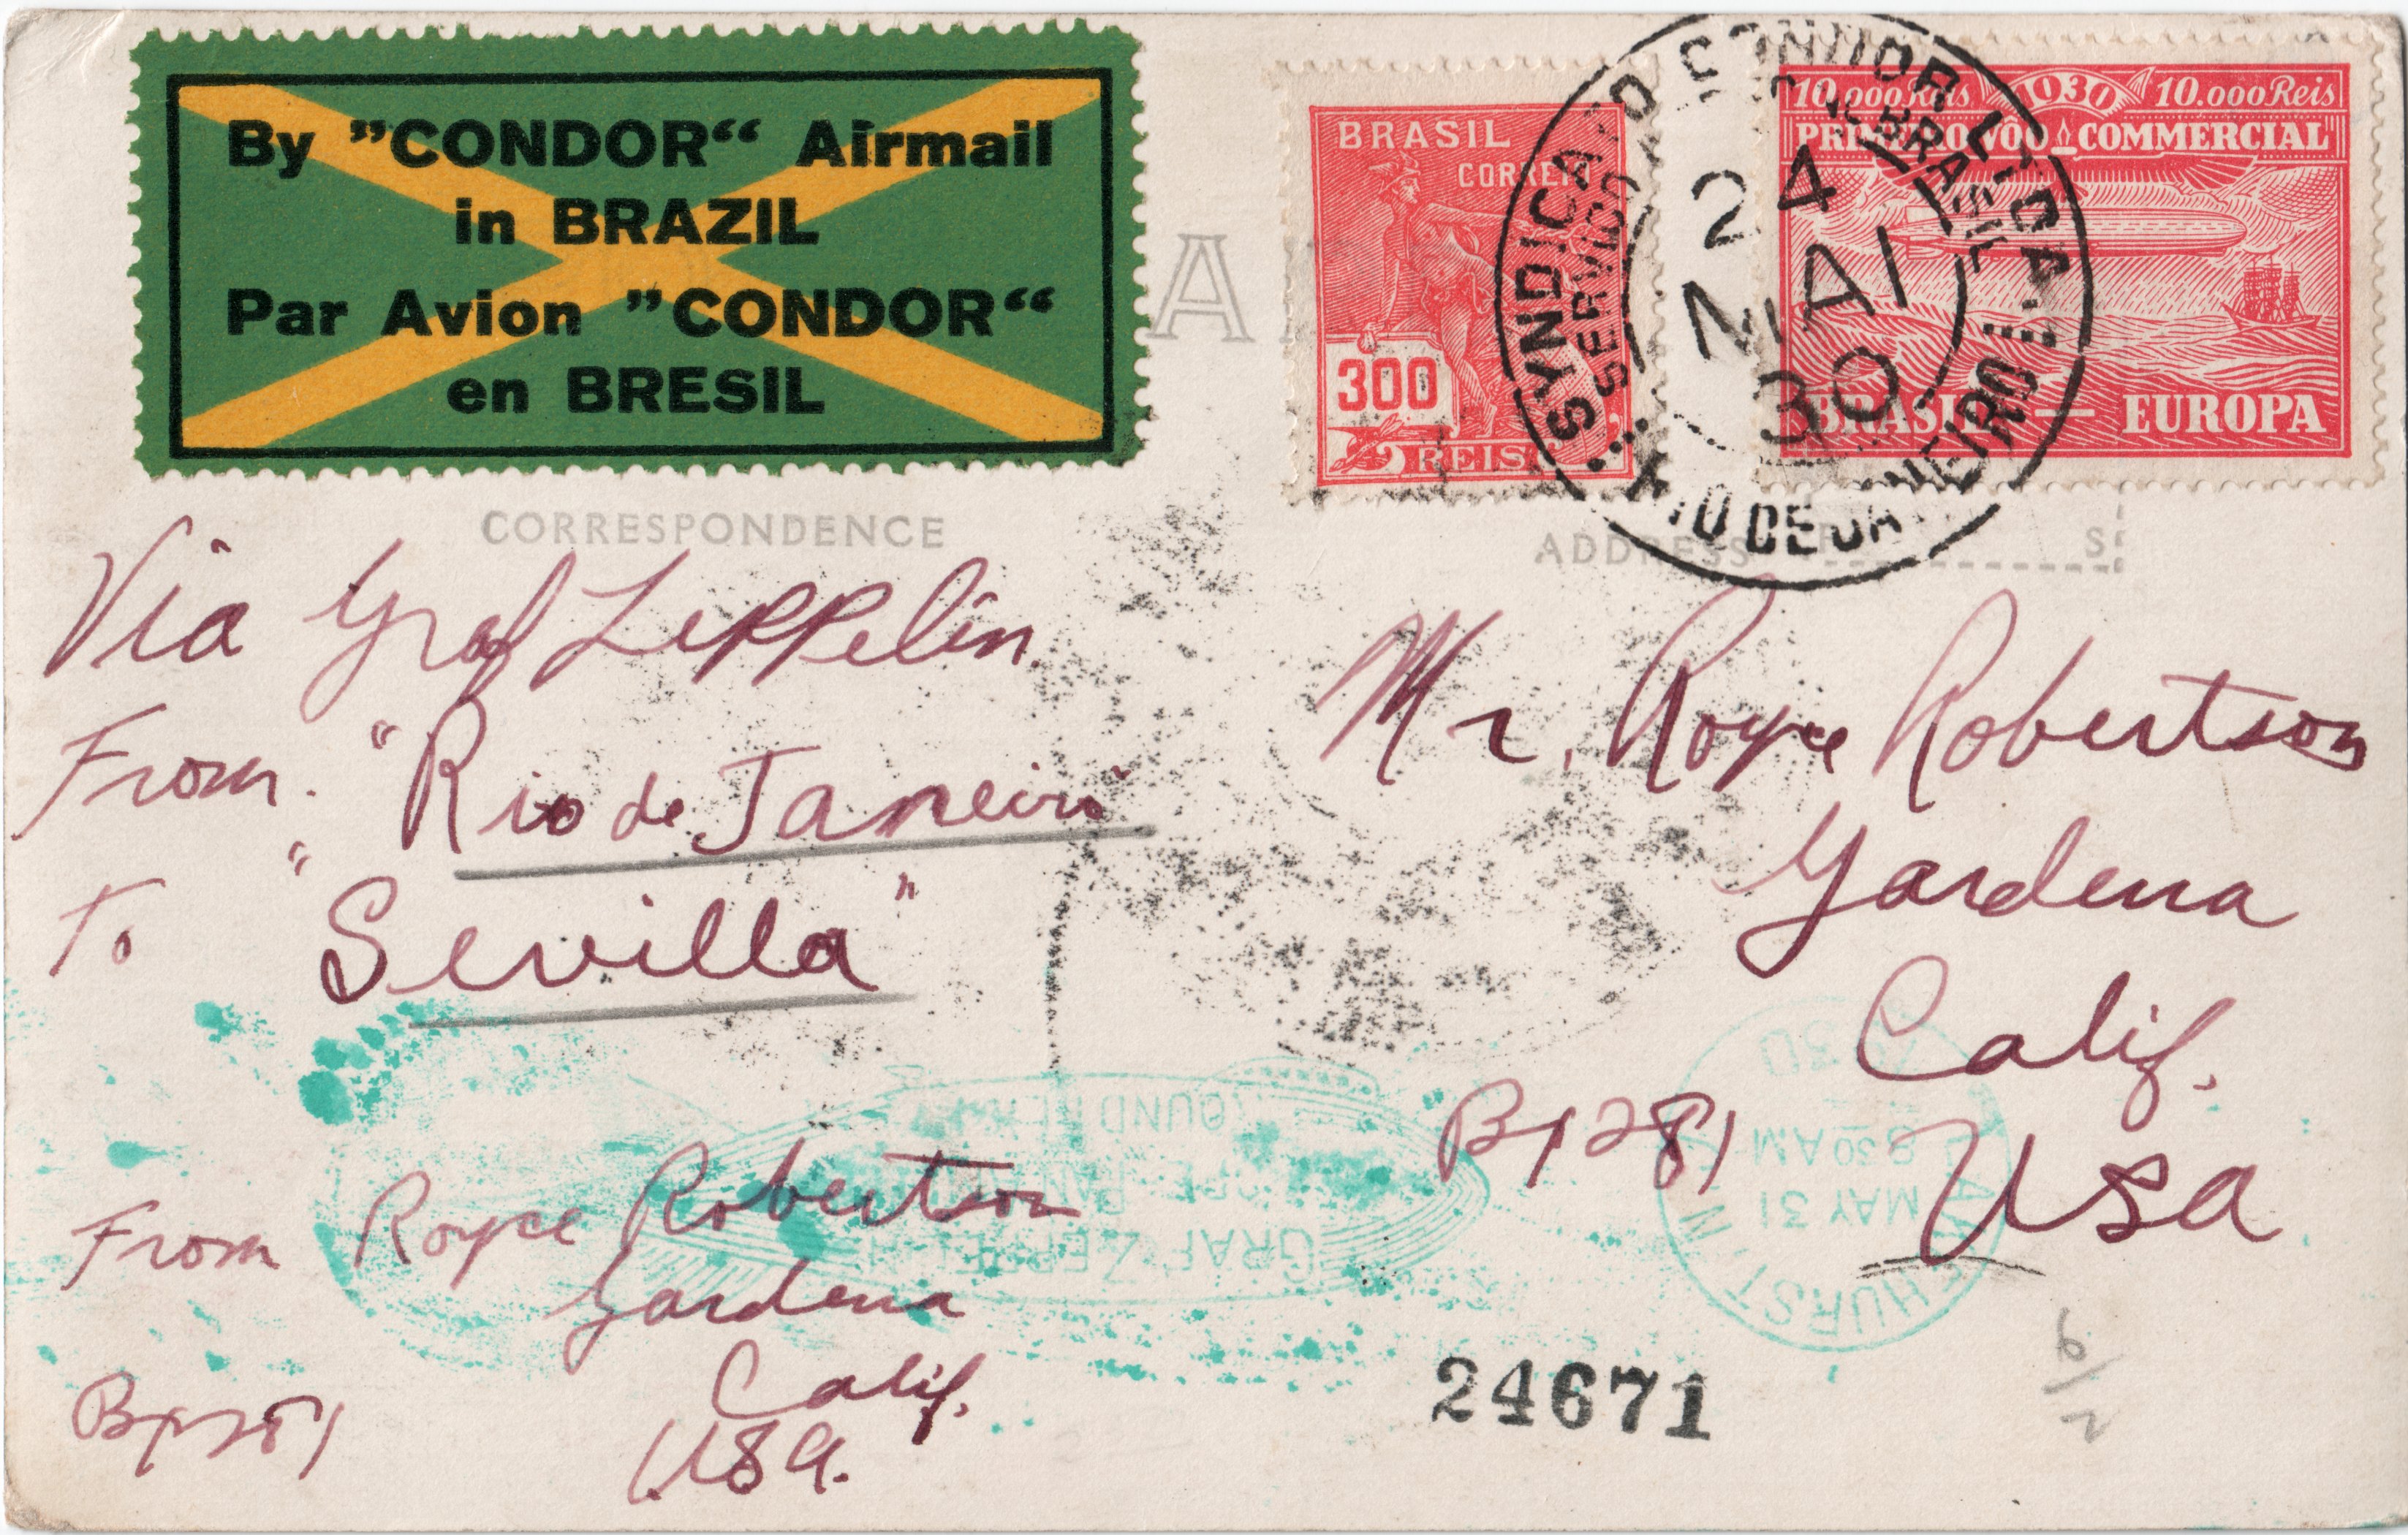 By "CONDOR" Airmail
in BRAZIL
Par Avion "CONDOR"
en BRESIL
BRASIL
CORREIO
300
REIS
SYNDICATO CONDOR LTDA.
SERVIÇO BRASIL
24
MAI
30
RIO DE JANEIRO
10.000 Reis 1930 10.000 Reis
PRIMEIRO VÔO COMMERCIAL
BRASIL — EUROPA
CORRESPONDENCE
ADDRESS
Via Graf Zeppelin.
From. "Rio de Janeiro"
To "Sevilla"
Mr. Royce Robertson
Gardena
Calif.
Bx 281
USA
From Royce Robertson
Gardena
Calif.
Bx 281
USA.
GRAF ZEPPELIN
EUROPE PAN AM
ROUND FLIGHT
LAKEHURST N.J.
MAY 31
930AM
24671